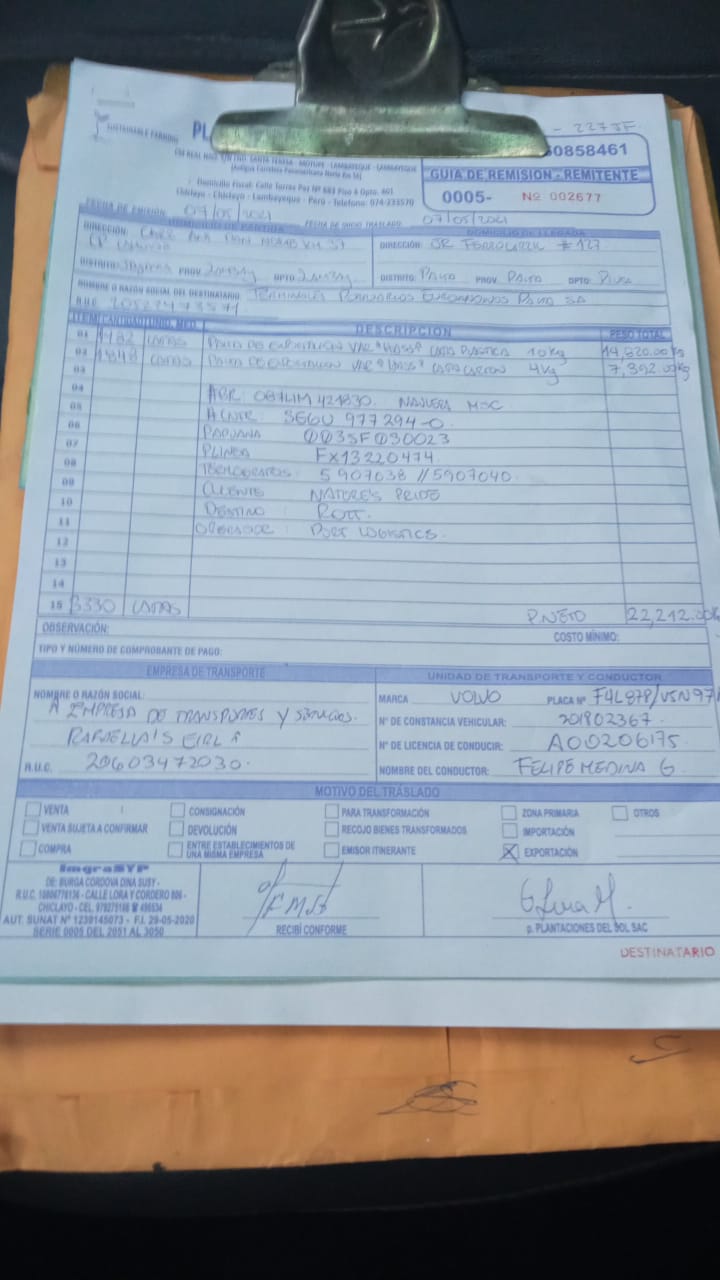 - 2273F
SUSTAINABLE FARMING
PL
60858461
GUIA DE REMISION - REMITENTE
0005- Nº 002677
SANTA TERESA - MOTUPE - LAMBAYEQUE - LAMBAYEQUE
(Antigua Carretera Panamericana Norte Km 86)
Domicilio Fiscal: Calle Torres Paz Nº 683 Piso 6 Opto. 601
Chiclayo - Chiclayo - Lambayeque - Perú - Teléfono: 074-233570
FECHA DE EMISIÓN: 07/05/2021 FECHA DE INICIO TRASLADO: 07/05/2021
DOMICILIO DE PARTIDA
DOMICILIO DE LLEGADA
DIRECCIÓN:
DIRECCIÓN: JR FERROCARRIL # 127
DISTRITO: PROV DPTO
DISTRITO: PAITA PROV. PAITA DPTO: PIURA
NOMBRE O RAZÓN SOCIAL DEL DESTINATARIO: TERMINALES PORTUARIOS EUROANDINOS PAITA SA
R.U.C. 20522473571
ITEM CANTIDAD UNID. MED. DESCRIPCION PESO TOTAL
01 1482 CAJAS PALTA DE EXPORTACION VAR "HASS" CAJA PLASTICA 10kg 14,820.00 kg
02 1848 CAJAS PALTA DE EXPORTACION VAR "HASS" CAJA CARTON 4kg 7,392.00kg
03
04
05
06
07
08
09
10
11
12
13
14
NAVIERA MSC
SEGU 977294-0
FX13220474
5907038 // 5907040
CLIENTE NATURE'S PRIDE
DESTINO : ROTT.
OPERADOR : PORT LOGISTICS.
15 3330 CAJAS P.NETO 22,212.00K
OBSERVACIÓN: COSTO MÍNIMO:
TIPO Y NÚMERO DE COMPROBANTE DE PAGO:
EMPRESA DE TRANSPORTE
UNIDAD DE TRANSPORTE Y CONDUCTOR
NOMBRE O RAZÓN SOCIAL:
EMPRESA DE TRANSPORTES Y SERVICIOS
EIRL
R.U.C. 20603472030.
MARCA VOLVO PLACA Nº F4L878/V5N97
Nº DE CONSTANCIA VEHICULAR: 201902367.
Nº DE LICENCIA DE CONDUCIR: A00206175
NOMBRE DEL CONDUCTOR: FELIPE MEDINA G
MOTIVO DEL TRASLADO
VENTA CONSIGNACIÓN PARA TRANSFORMACIÓN ZONA PRIMARIA OTROS
VENTA SUJETA A CONFIRMAR DEVOLUCIÓN RECOJO BIENES TRANSFORMADOS IMPORTACIÓN
COMPRA ENTRE ESTABLECIMIENTOS DE UNA MISMA EMPRESA EMISOR ITINERANTE X EXPORTACIÓN
ImgraSYP
DE: BURGA CORDOVA DINA SUSY -
R.U.C. 16806778136 - CALLE LORA Y CORDERO 806 -
CHICLAYO - CEL. 979275188
AUT. SUNAT Nº 1239145073 - F.I. 29-05-2020
SERIE 0005 DEL 2051 AL 3050
RECIBÍ CONFORME
p. PLANTACIONES DEL SOL SAC
DESTINATARIO